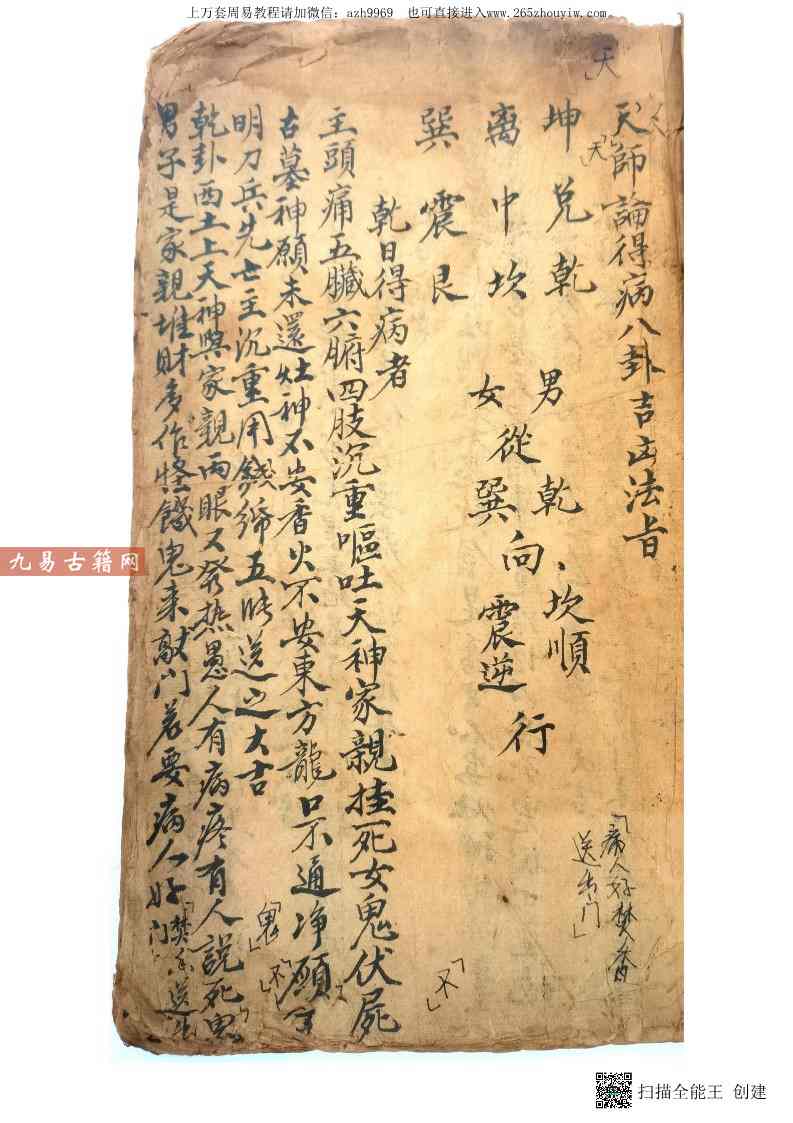 上万套周易教程请加微信：azh9969  也可直接进入www.265zhouyiw.com
天
天師論得病八卦吉凶法旨
天
坤兌乾
离中坎
巽震艮
男乾、坎順
女從巽向震逆行
「病人好焚香
送出门」
乾日得病者
主頭痛五臟六腑四肢沉重嘔吐天神家親挂死女鬼伏屍
古墓神願未還灶神不安香火不安東方龍口不通净願
明刀兵先亡主沉重用錢 五 送之大吉
乾卦西土上天神與家親两眼又發热愚人有病疼有人說死鬼
男子是家親堆財多作怪饑鬼来敲门若要病人好
焚香送出
门
「鬼」
「不」
「不」
九易古籍网
扫描全能王 创建